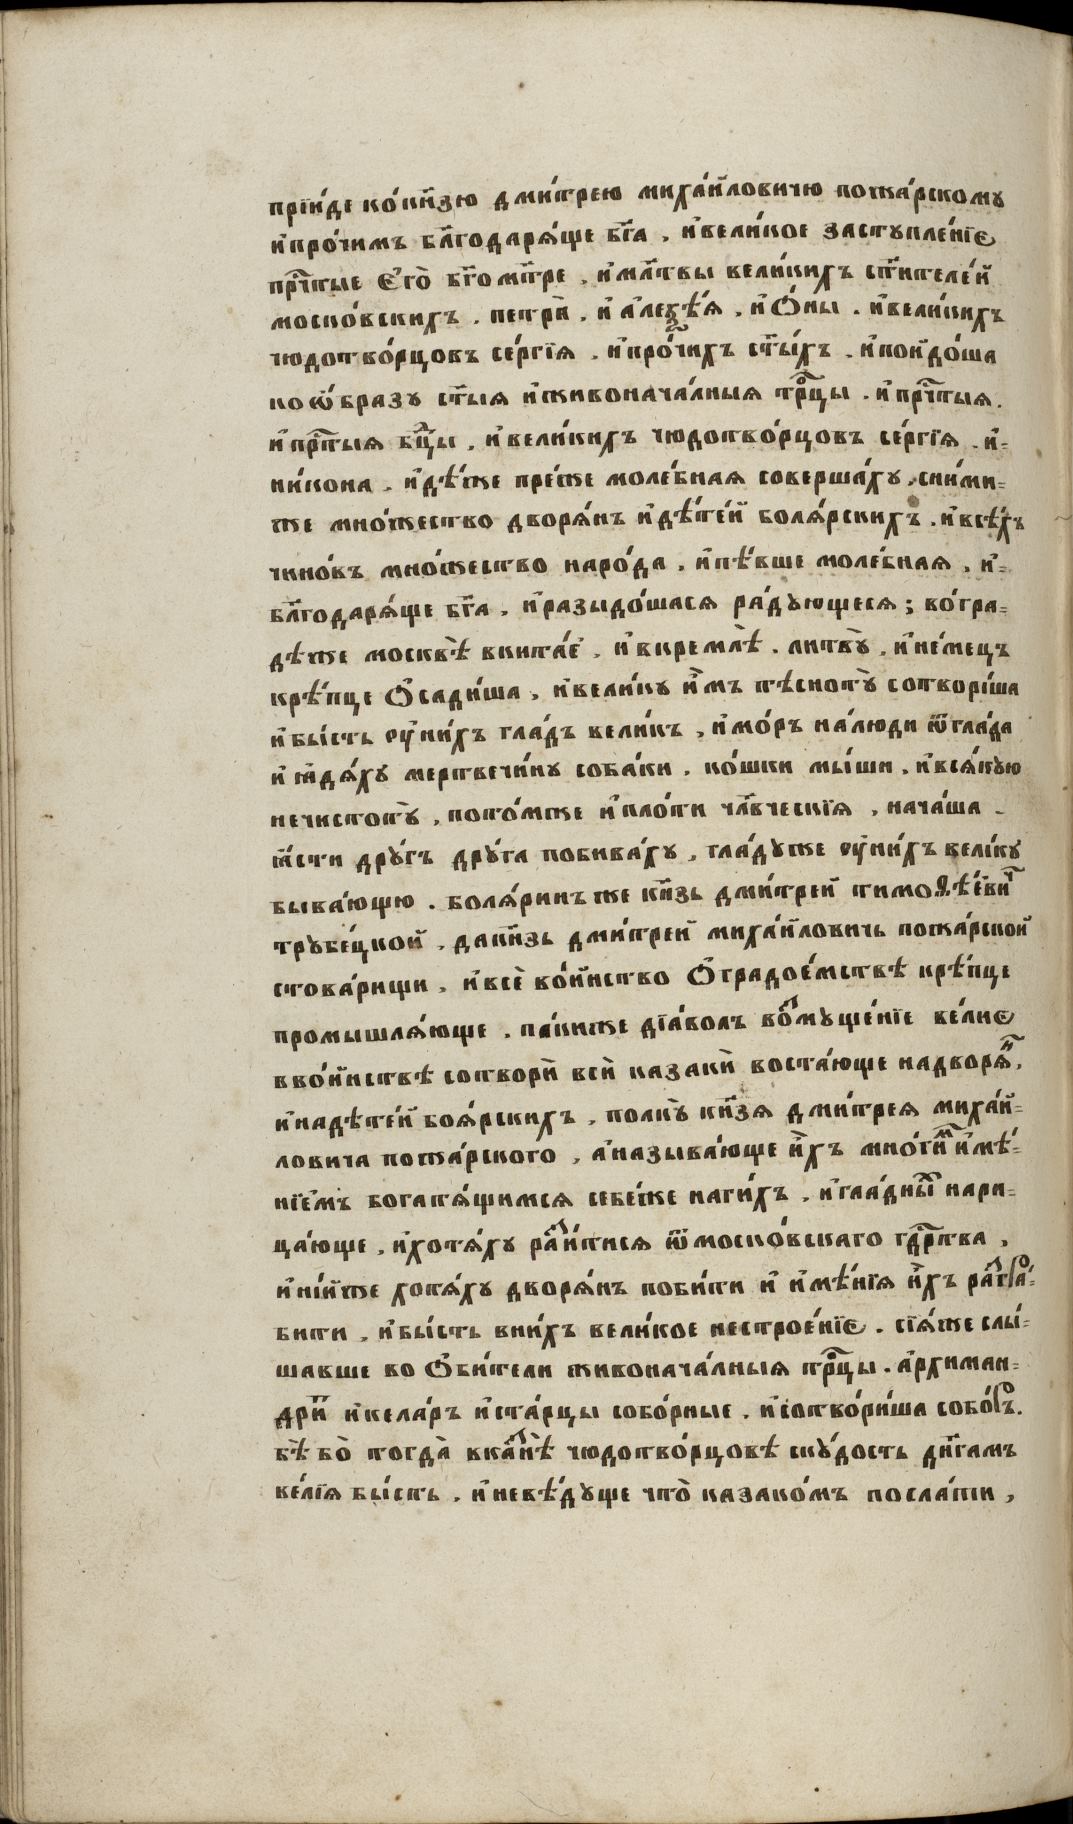 прїи́де ко́кн҃зю дми́трею миха́йловичю пожа́рскому
и҆про́чимъ бл҃годаря́ще бг҃а , и҆вели́кое заступле́нїє
прⷭ҇тые Є҆го̀ бг҃ом҃тре , и҆мл҃твы вели́кихъ ст҃ителе́й
моско́вскихъ . петра̀ , и҆ а҆леѯѣ́я , и҆ Ѻ҆́ны . и҆вели́кихъ
чюдотво́рцовъ се́ргїя . и҆про́чихъ ст҃ы́хъ . и҆пойдо́ша
ко ѡ҆́бразу ст҃ы́я и҆живонача́лныя трⷪ҇цы . и҆ прⷭ҇тыя .
и҆ прⷭ҇тыя бц҃ы , и҆вели́кихъ чюдотво́рцовъ се́ргїя . и҆-
ни́кона . и҆дѣ́же пре́же моле́бная соверша́ху , сни́ми-
же мно́жество дворя́нъ и҆дѣте́й боля́рскихъ . и҆всѣ́хъ
чино́въ мно́жество наро́да , и҆пѣ́вше моле́бная , и҆-
бл҃годаря́ще бг҃а , и҆разыдо́шася ра́дующеся ; во́гра-
дѣ же москвѣ̀ вкита́є҆ , и҆вкремлѣ̀ . литвꙋ̀ , и҆не́мецъ
крѣ́пце Ѻ҆сади́ша , и҆вели́ку и҆̀мъ тѣснотꙋ̀ сотвори́ша
и҆ бы́сть ᲂу҆ни́хъ гла́дъ вели́къ , и҆мо́ръ на́люди ѿгла́да
и҆ ꙗ҆дя́ху мертвечи́ну соба́ки , ко́шки мы́ши , и҆вся́кую
нечистотꙋ̀ , пото́мже и҆пло́ти чл҃вческїя , нача́ша -
ꙗ҆́сти дрꙋ́гъ дрꙋ́га побива́ху , гла́дуже ᲂу҆ни́хъ вели́ку
быва́ющю . боля́ринъ же кн҃зь дми́трей тимоѳѣ́евиⷱ҇
трꙋбе́цкой , дакн҃зь дми́трей миха́йловичь пожа́рской
стова́рищи , и҆всѐ во́инство Ѻ҆градое́мствѣ крѣ́пце
промышля́юще , па́киже дїа́волъ воⷥмуще́нїе ве́лиє
вво́инствѣ сотворѝ всѝ казакѝ воста́юще надворяⷩ҇ ,
и҆надѣте́й боя́рскихъ , полкꙋ̀ кн҃зя дми́трея миха́й-
ловича пожа́рского , а҆называ́юще и҆̀хъ мно́гиⷨ и҆мѣ́-
нїемъ богатя́щимся себе́же наги́хъ , и҆гла́дныⷯ нари-
ца́юще , и҆хотя́ху раⷥи́тися ѿмоско́вскаго гдⷭ҇рства ,
и҆ні́иже хотя́ху дворя́нъ поби́ти и҆ и҆мѣ́нїя и҆̀хъ раⷥгра́-
бити , и҆бы́сть вни́хъ вели́кое нестрое́нїє . сїя́же слы́-
шавше во Ѻ҆би́тели живонача́лныя трⷪ҇цы . а҆рхиман-
дри́ⷮ и҆кела́ръ и҆ста́рцы собо́рные . и҆сотвори́ша собо́ръ .
бѣ̀ бо̀ тогда̀ вкаⷥнѣ̀ чюдотво́рцовѣ скꙋ́дость де҃нгамъ
ве́лїя бы́сть . и҆невѣ́дуще что̀ казако́мъ посла́ти ,